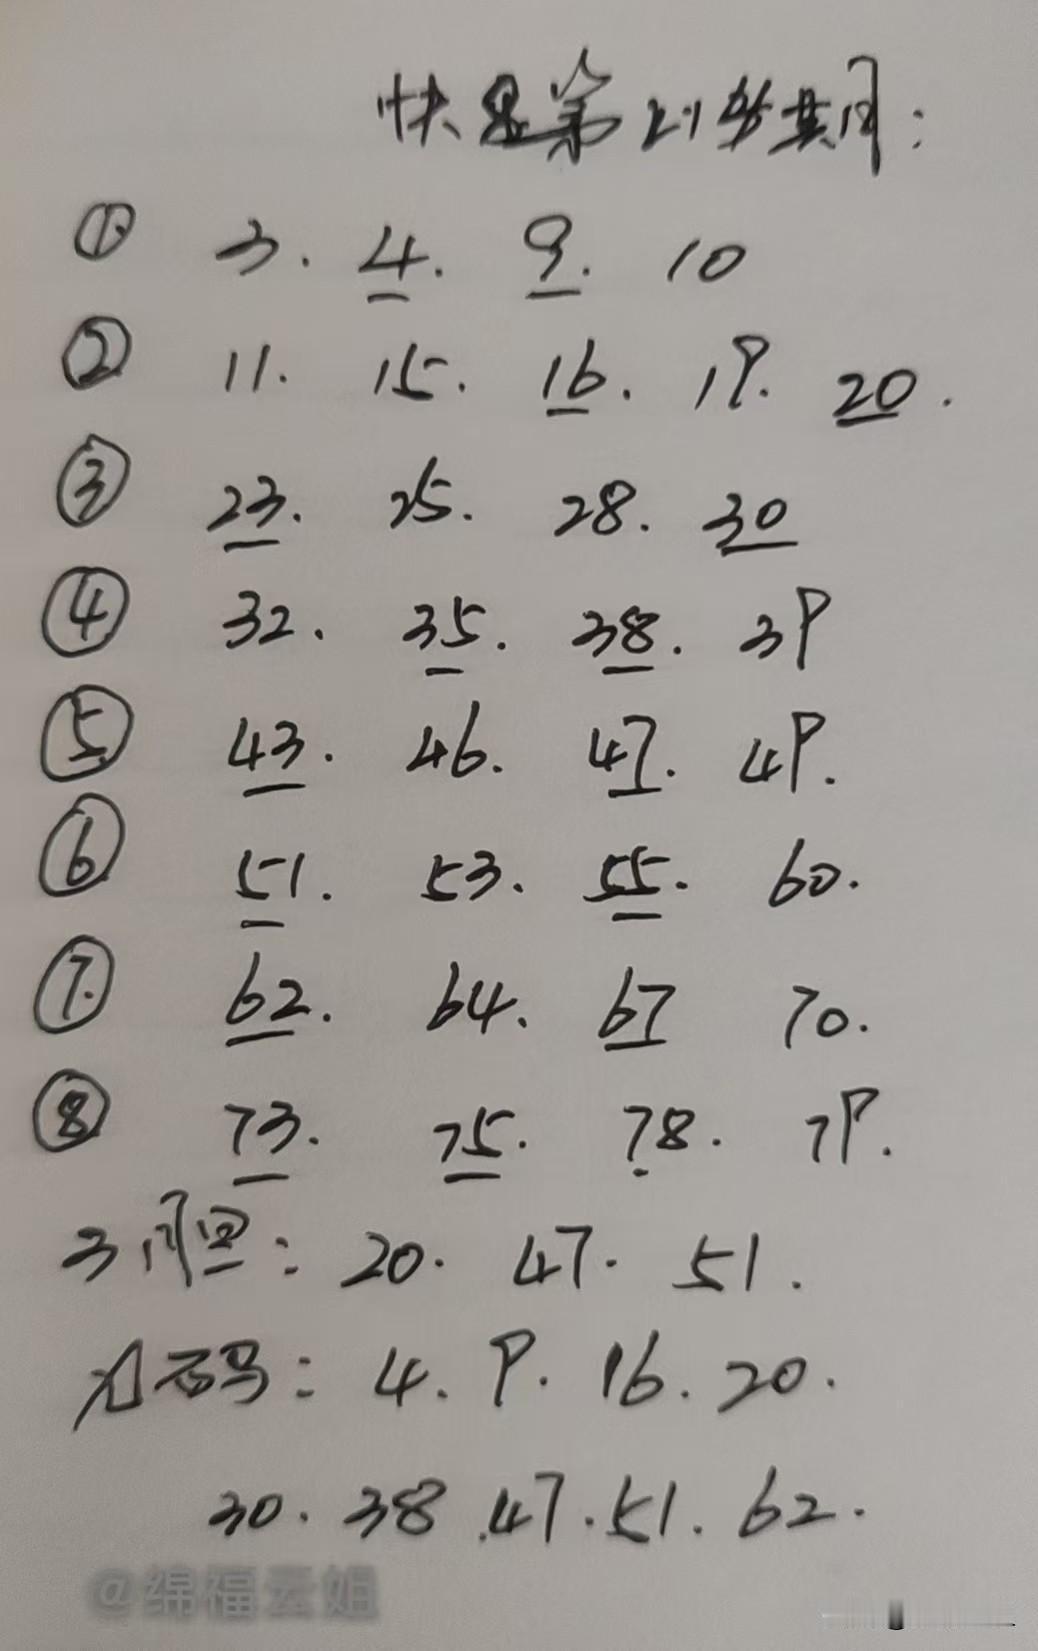 快 第21 期:
① 3. 4. 9. 10
② 11. 15. 16. 19. 20.
③ 23. 25. 28. 30
④ 32. 35. 38. 39
⑤ 43. 46. 47. 49.
⑥ 51. 53. 55. 60.
⑦ 62. 64. 67 70.
⑧ 73. 75. 78. 79.
3 : 20. 47. 51.
码: 4. 9. 16. 20.
30. 38 .47. 51. 62.
@绵福云姐